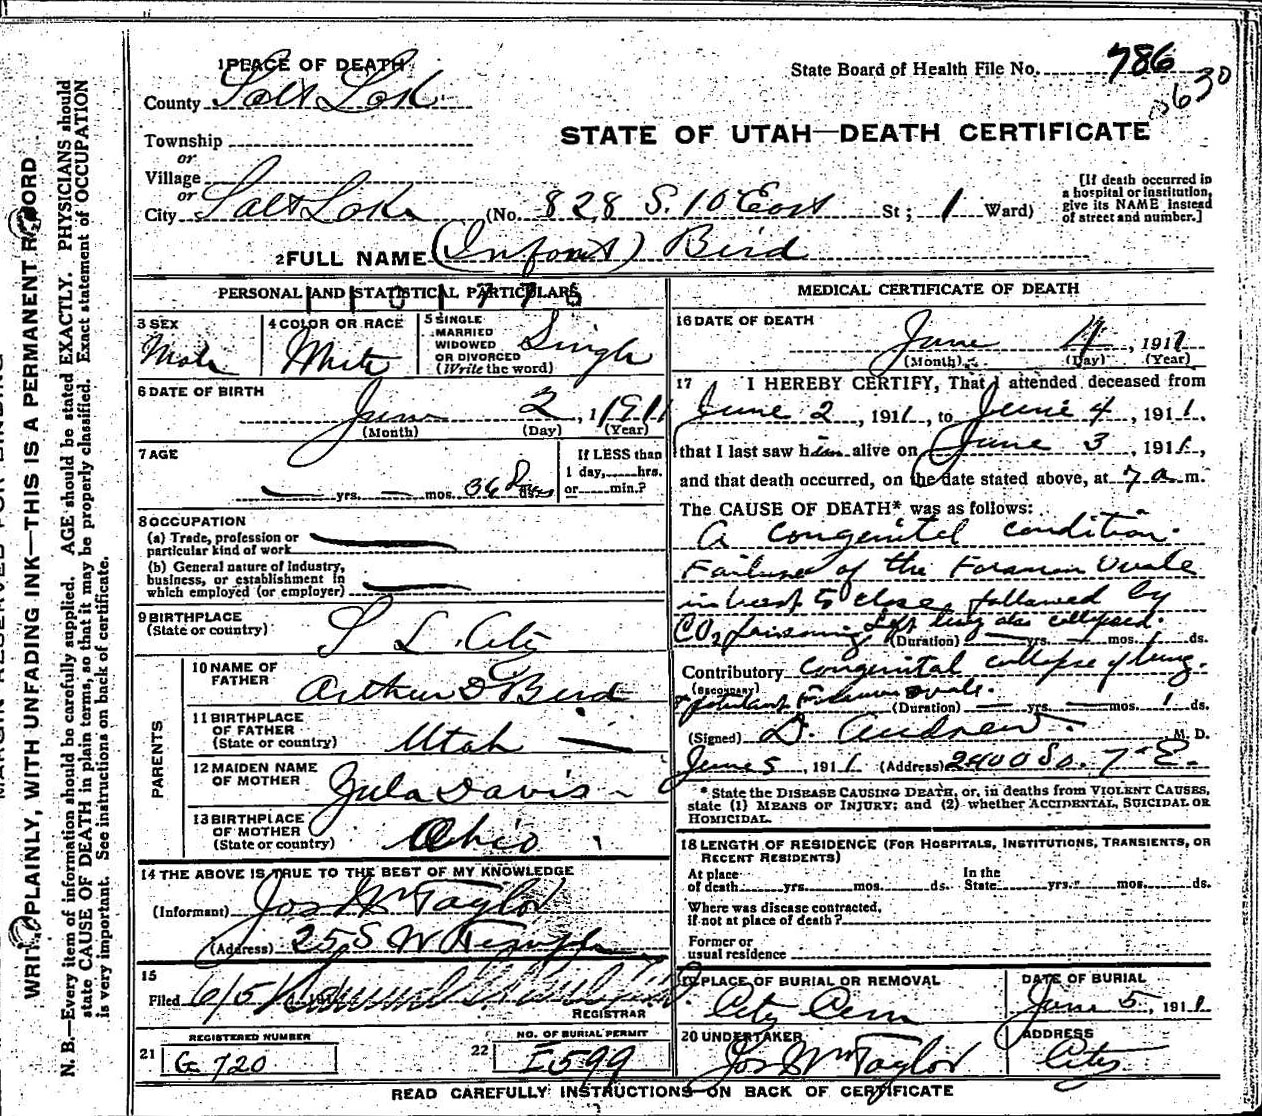 1 PLACE OF DEATH
County Salt Lake
Township
or
Village
or
City Salt Lake (No. 828 S. 10 East St; 1 Ward)
State Board of Health File No. 786
630
STATE OF UTAH—DEATH CERTIFICATE
[If death occurred in
a hospital or institution,
give its NAME instead
of street and number.]
2 FULL NAME (Infant) Bird
PERSONAL AND STATISTICAL PARTICULARS
3 SEX
Male
4 COLOR OR RACE
White
5 SINGLE
MARRIED
WIDOWED
OR DIVORCED
(Write the word)
Single
6 DATE OF BIRTH
June 2, 1911
(Month) (Day) (Year)
7 AGE
yrs. mos. ds.
If LESS than
1 day, hrs.
or min.?
8 OCCUPATION
(a) Trade, profession or
particular kind of work
(b) General nature of industry,
business, or establishment in
which employed (or employer)
9 BIRTHPLACE
(State or country)
S L. City
PARENTS
10 NAME OF
FATHER
Arthur D Bird
11 BIRTHPLACE
OF FATHER
(State or country)
Utah
12 MAIDEN NAME
OF MOTHER
Zula Davis
13 BIRTHPLACE
OF MOTHER
(State or country)
Ohio
14 THE ABOVE IS TRUE TO THE BEST OF MY KNOWLEDGE
(Informant) Jos Wm Taylor
(Address) 25 S W Temple
15
Filed 6/5 191
REGISTRAR
REGISTERED NUMBER
21 G 720
NO. OF BURIAL PERMIT
22 E599
MEDICAL CERTIFICATE OF DEATH
16 DATE OF DEATH
June 4, 1911
(Month) (Day) (Year)
17 I HEREBY CERTIFY, That I attended deceased from
June 2, 1911, to June 4, 1911,
that I last saw him alive on June 3, 1911,
and that death occurred, on the date stated above, at 7 a m.
The CAUSE OF DEATH* was as follows:
A congenital condition.
Failure of the Foramen Ovale
in heart to close, followed by
CO2 poisoning Left lung also collapsed.
(Duration) yrs. mos. 1 ds.
Contributory Congenital collapse of lung.
(SECONDARY)
Foramen ovale.
(Duration) yrs. mos. 1 ds.
(Signed) D. Andrew M. D.
June 5, 1911 (Address) 2400 So. 7 E.
* State the DISEASE CAUSING DEATH, or, in deaths from VIOLENT CAUSES,
state (1) MEANS OF INJURY; and (2) whether ACCIDENTAL, SUICIDAL OR
HOMICIDAL.
18 LENGTH OF RESIDENCE (FOR HOSPITALS, INSTITUTIONS, TRANSIENTS, OR
RECENT RESIDENTS)
At place
of death yrs. mos. ds.
In the
State yrs. mos. ds.
Where was disease contracted,
if not at place of death?
Former or
usual residence
19 PLACE OF BURIAL OR REMOVAL
City Cem
DATE OF BURIAL
June 5, 1911
20 UNDERTAKER
Jos Wm Taylor
ADDRESS
City
READ CAREFULLY INSTRUCTIONS ON BACK OF CERTIFICATE
WRITE PLAINLY, WITH UNFADING INK—THIS IS A PERMANENT RECORD
N. B.—Every item of information should be carefully supplied. AGE should be stated EXACTLY. PHYSICIANS should
state CAUSE OF DEATH in plain terms, so that it may be properly classified. Exact statement of OCCUPATION
is very important. See instructions on back of certificate.